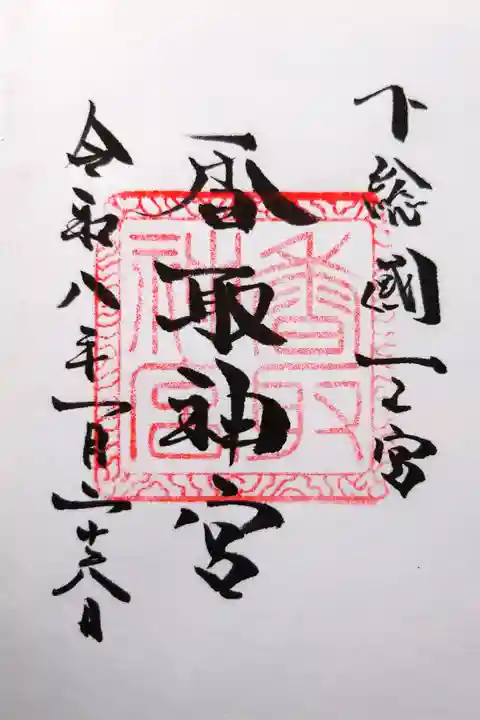 下総國一之宮
香取神宮
令和八年一月二十八日
香取
神宮